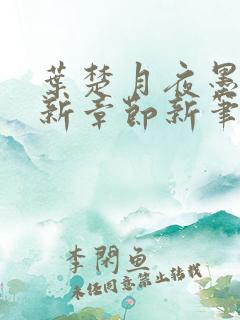 葉楚月夜墨
新章節新筆
李閑魚
未经同意禁止转载